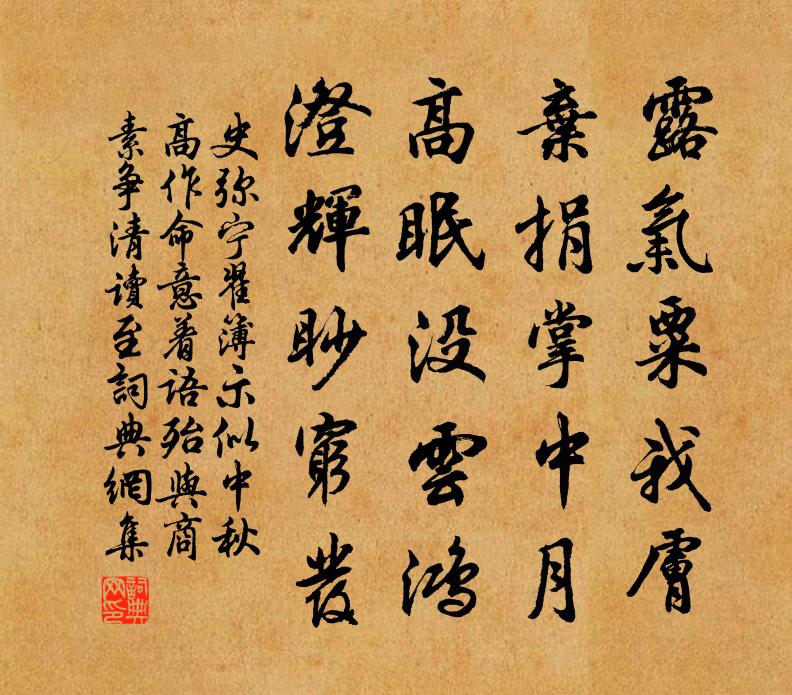 露氣粟我膚
棄捐掌中月
高眠没雲鴻
澄輝眇窮髮
史弥宁翟簿示似中秋
高作命意着語殆與商
素争清讀至詞典網集
詞典网印